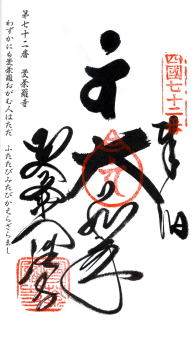 四國七十二
奉納
大日如来
曼荼羅寺
第七十二番　曼荼羅寺
わずかにも曼荼羅おがむ人はただ　ふたたびみたびかえらざらまし